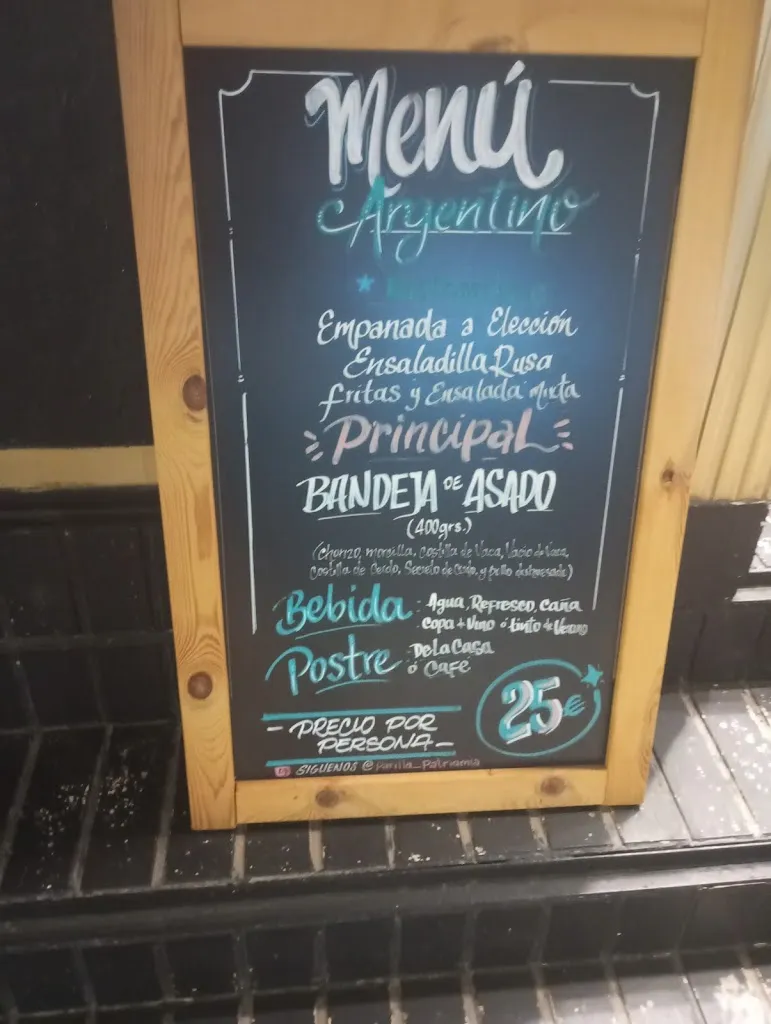 Menú
Argentino
Empanada a Elección
Ensaladilla Rusa
fritas y Ensalada mixta
Principal
BANDEJA DE ASADO
(400grs.)
(Chorizo, morcilla, Costilla de Vaca, Vacio de Vaca,
Costilla de Cerdo, Secreto de Cerdo, y pollo deshuesado)
Bebida : Agua, Refresco, caña
copa + Vino ó tinto de Verano
Postre · De La Casa
ó CAFÉ
25€
- PRECIO POR
PERSONA -
SIGUENOS @Parrilla_Patriamia